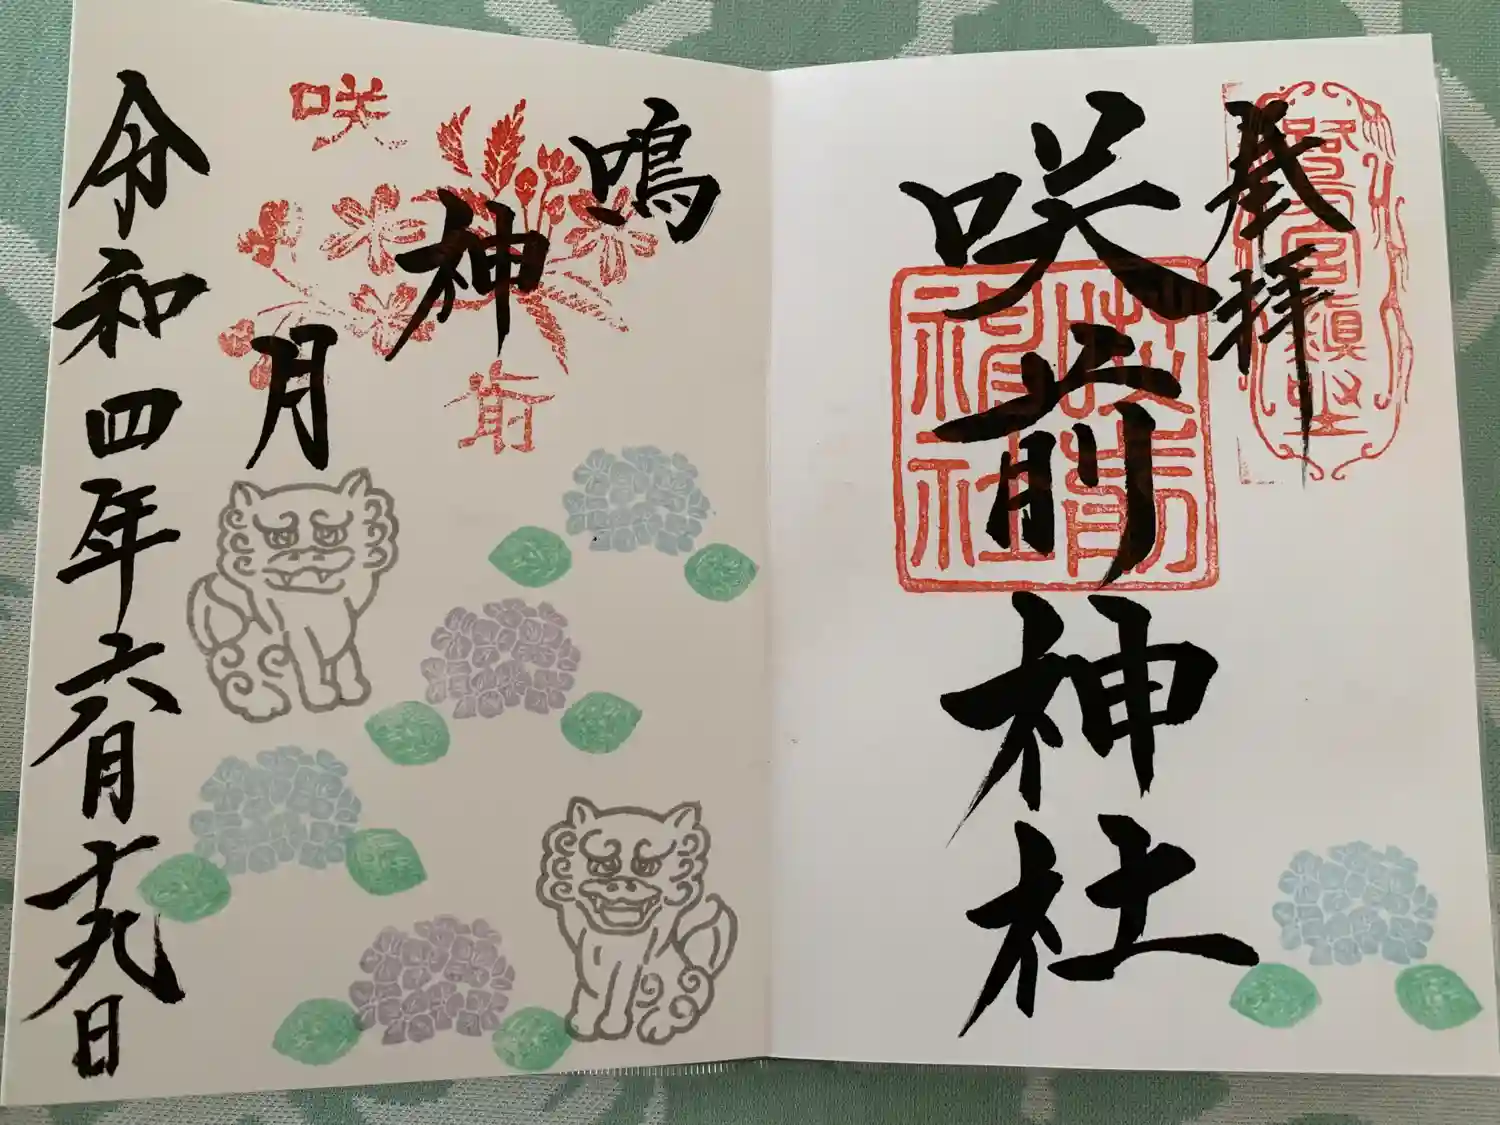 奉拝
咲前神社
鳴神月
咲
前
令和四年六月十九日